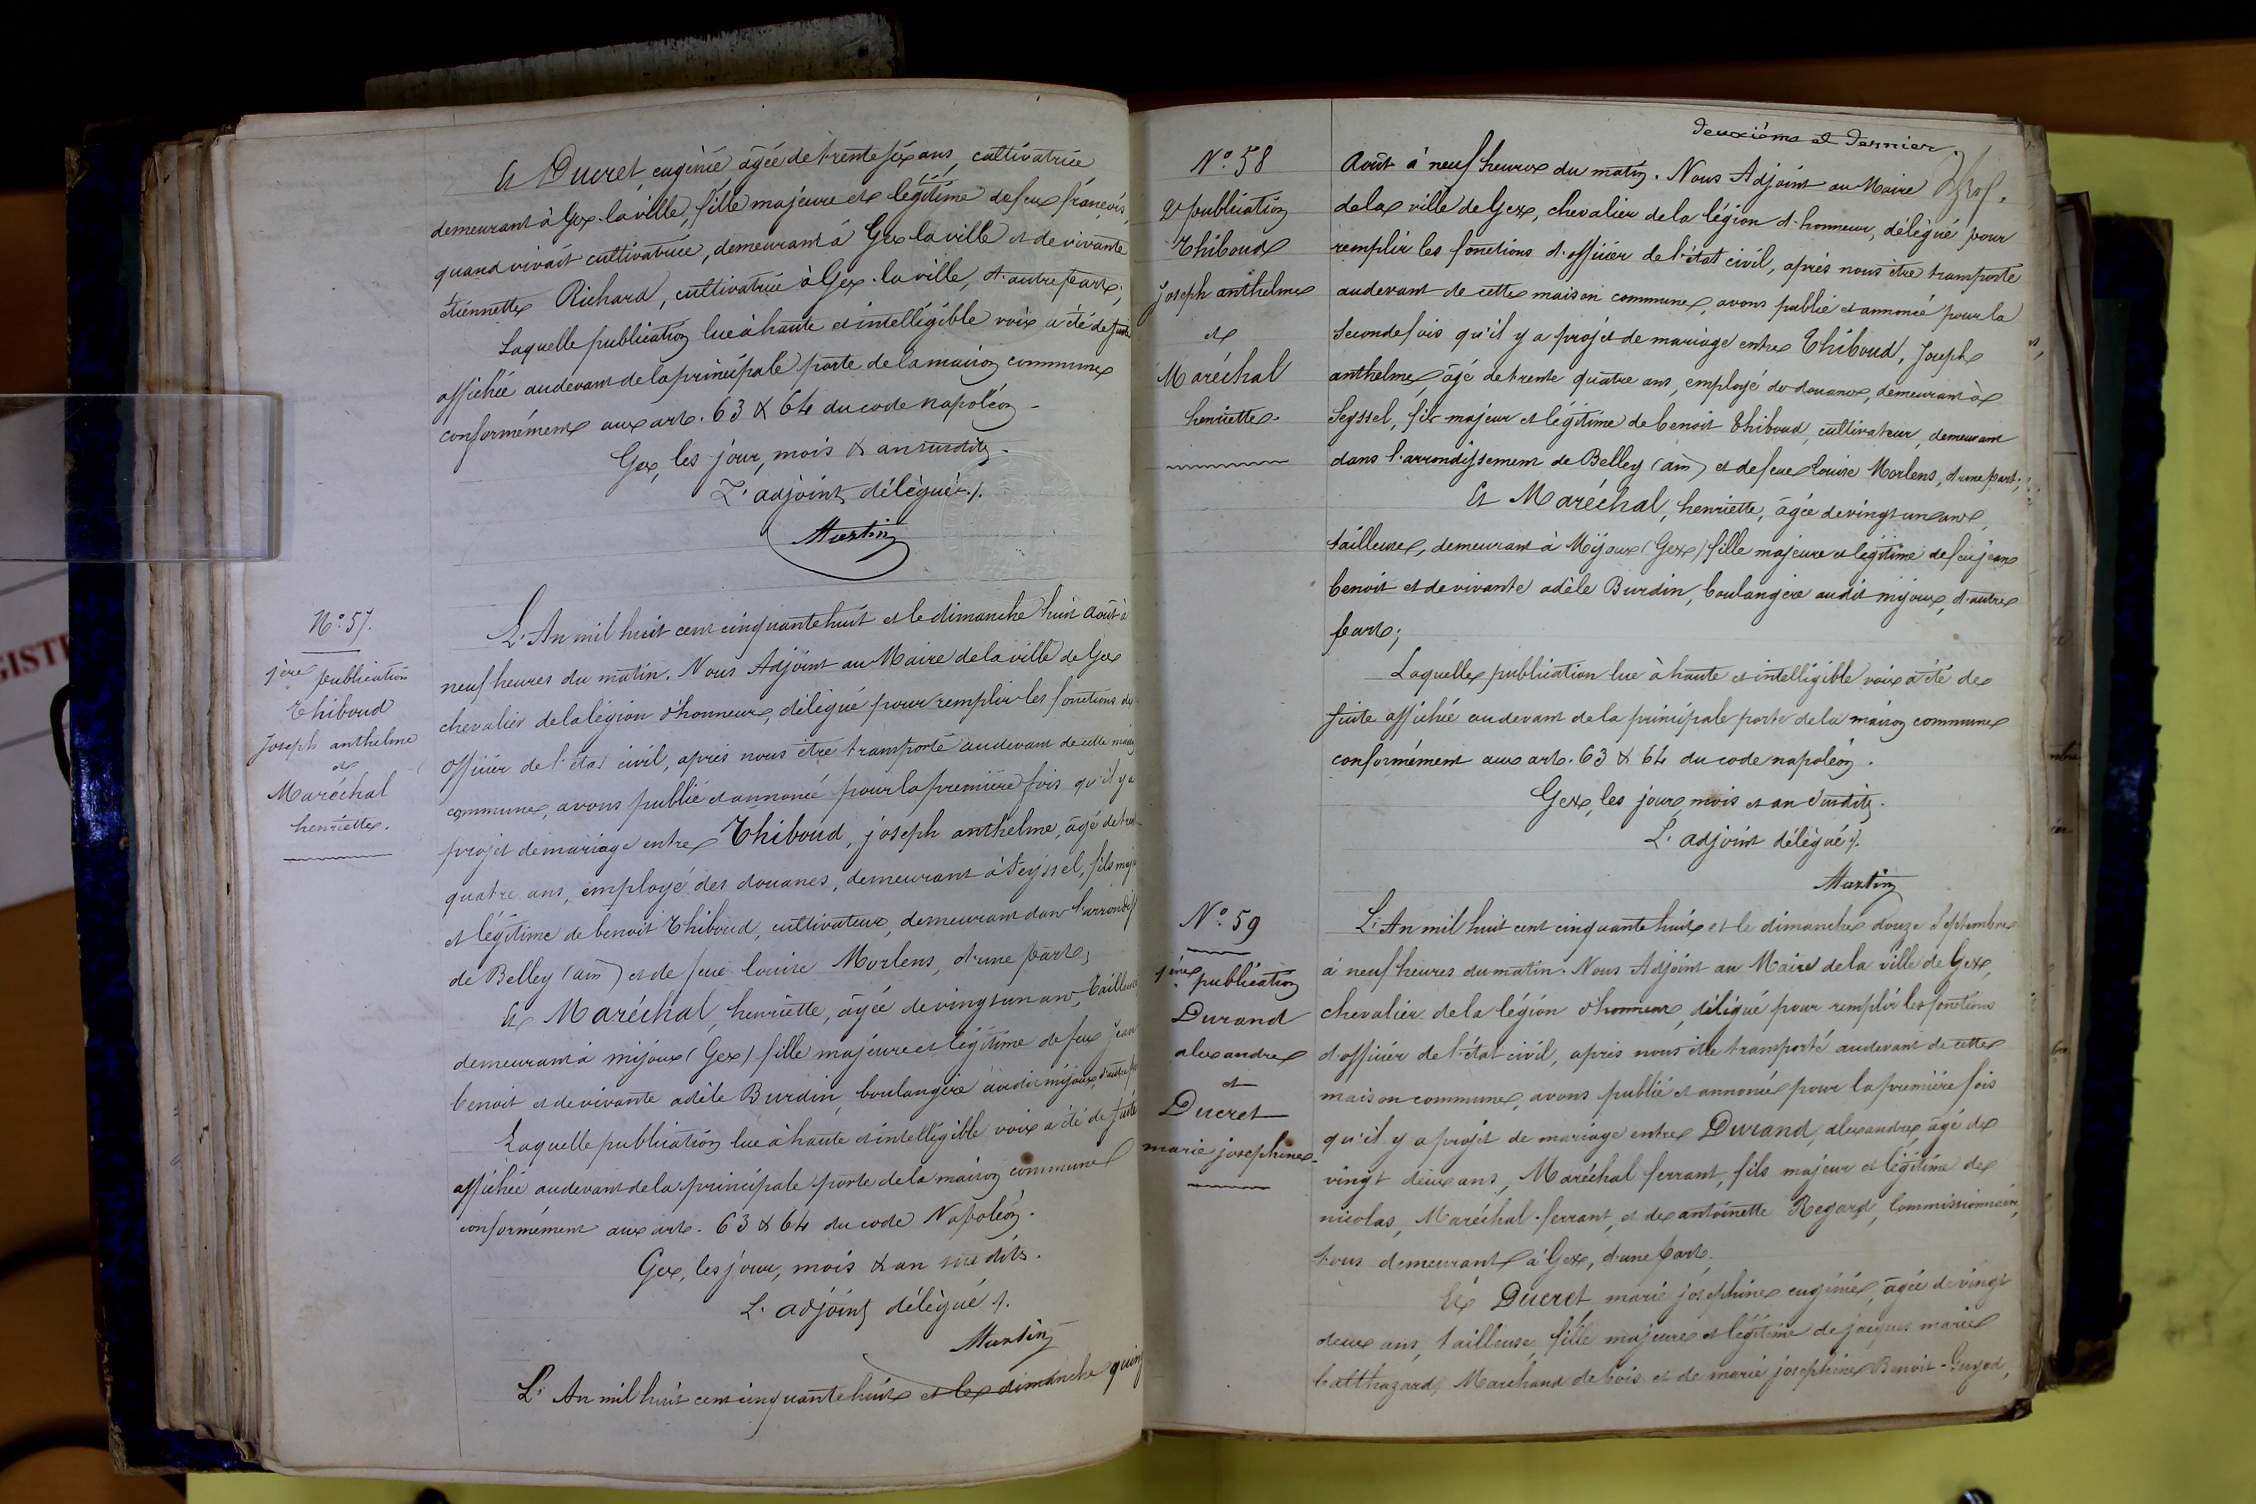 Et Ducret, eugénie, âgée de trente six ans, cultivatrice
demeurant à Gex-la ville, fille majeure et légitime de feu françois,
quand vivait cultivatrice, demeurant à Gex la ville et de vivante
étiennette Richard, cultivatrice à Gex-la ville, d'autre part;
Laquelle publication lue à haute et intelligible voix a été de suite
affichée audevant de la principale porte de la maison commune
conformément aux art. 63 & 64 du code napoléon -
Gex, les jour, mois & an susdits.
L'adjoint délégué ./.
Martin
N.o 57.
1ère publication
Thiboud
Joseph anthelme
et
Maréchal
henriette.
L'An mil huit cent cinquante huit et le dimanche huit août à
neuf heures du matin. Nous Adjoint au Maire de la ville de Gex
chevalier de la légion d'honneur, délégué pour remplir les fonctions de
officier de l'état civil, après nous être transporté audevant de cette maison
commune, avons publié et annoncé pour la première fois qu'il y a
projet de mariage entre Thiboud, joseph anthelme, âgé de trente
quatre ans, employé des douanes, demeurant à Seyssel, fils maj
et légitime de benoit Thiboud, cultivateur, demeurant dans l'arrondiss
de Belley (ain) et de feue louise Morlens, d'une part;
Et Maréchal, henriette, âgée de vingt un ans, tailleuse
demeurant à mijoux (Gex) fille majeure et légitime de feu jean
benoit et de vivante adèle Burdin, boulangère audit mijoux, d'autre part
Laquelle publication lue à haute et intelligible voix a été de suite
affichée audevant de la principale porte de la maison commune
conformément aux art. 63 & 64 du code Napoléon.
Gex, les jour, mois & an susdits.
L'adjoint délégué ./.
Martin
L'An mil huit cent cinquante huit et le dimanche quinz
deuxième et dernier
N.o 58
2e publication
Thiboud
Joseph anthelme
et
Maréchal
henriette.
Août à neuf heures du matin. Nous Adjoint au Maire
de la ville de Gex, chevalier de la légion d'honneur, délégué pour
remplir les fonctions d'officier de l'état civil, après nous être transporté
audevant de cette maison commune, avons publié et annoncé pour la
seconde fois qu'il y a projet de mariage entre Thiboud, Joseph
anthelme, âgé de trente quatre ans, employé de douane, demeurant à
Seyssel, fils majeur et légitime de benoit Thiboud, cultivateur, demeurant
dans l'arrondissement de Belley (ain) et de feue louise Morlens, d'une part;
Et Maréchal, henriette, âgée de vingt un ans,
tailleuse, demeurant à Mijoux (Gex) fille majeure et légitime de feu jean
benoit et de vivante adèle Burdin, boulangère audit mijoux, d'autre
part;
Laquelle publication lue à haute et intelligible voix a été de
suite affichée audevant de la principale porte de la maison commune
conformément aux art. 63 & 64 du code napoléon.
Gex, les jour, mois et an susdits.
L'adjoint délégué ./.
Martin
N.o 59
1ère publication
Durand
alexandre
et
Ducret
marie josephine.
L'An mil huit cent cinquante huit et le dimanche douze Septembre
à neuf heures du matin. Nous Adjoint au Maire de la ville de Gex,
chevalier de la légion d'honneur, délégué pour remplir les fonctions
d'officier de l'état civil, après nous être transporté audevant de cette
maison commune, avons publié et annoncé pour la première fois
qu'il y a projet de mariage entre Durand, alexandre, âgé de
vingt deux ans, Maréchal ferrant, fils majeur et légitime de
nicolas, Maréchal-ferrant, et de antoinette Regard, Commissionnaire,
tous demeurant à Gex, d'une part,
Et Ducret, marie joséphine eugénie, âgée de vingt
deux ans, tailleuse, fille majeure et légitime de jacques marie
balthazard, Marchand de bois et de marie josephine Benoit-Guyod,